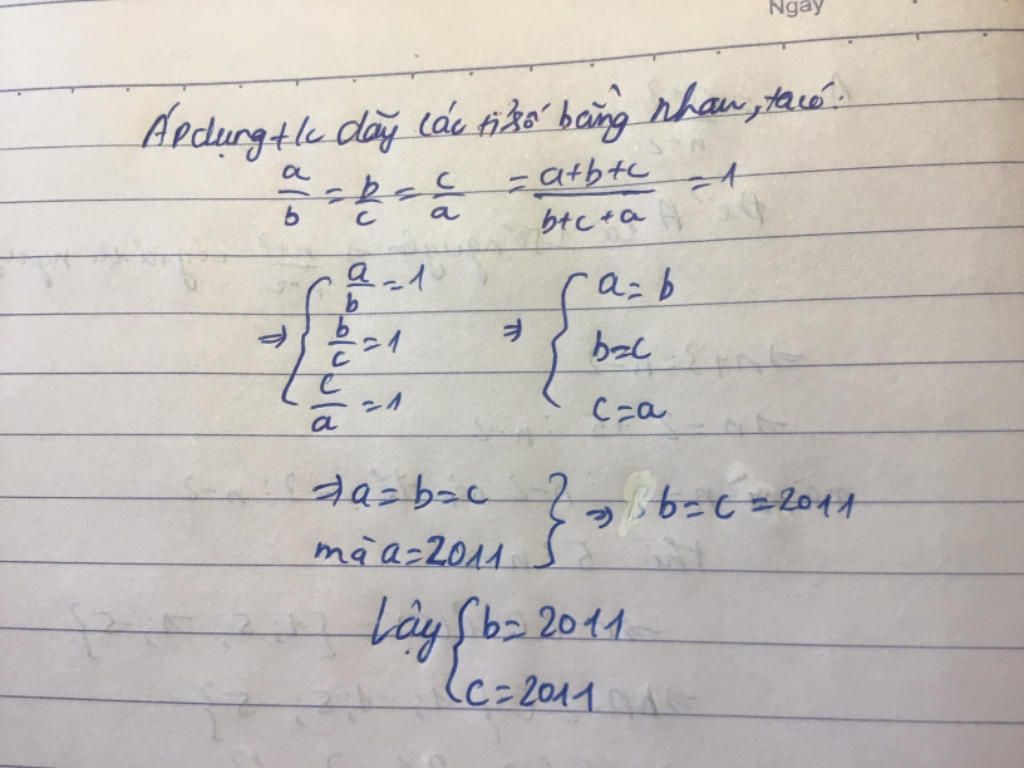 Ngày
Áp dụng t/c dãy các tỉ số bằng nhau, ta có:
a/b = b/c = c/a = (a+b+c)/(b+c+a) = 1
⇒ { a/b = 1 ⇒ { a = b
b/c = 1 b = c
c/a = 1 c = a
⇒ a = b = c } ⇒ b = c = 2011
mà a = 2011
Vậy { b = 2011
c = 2011